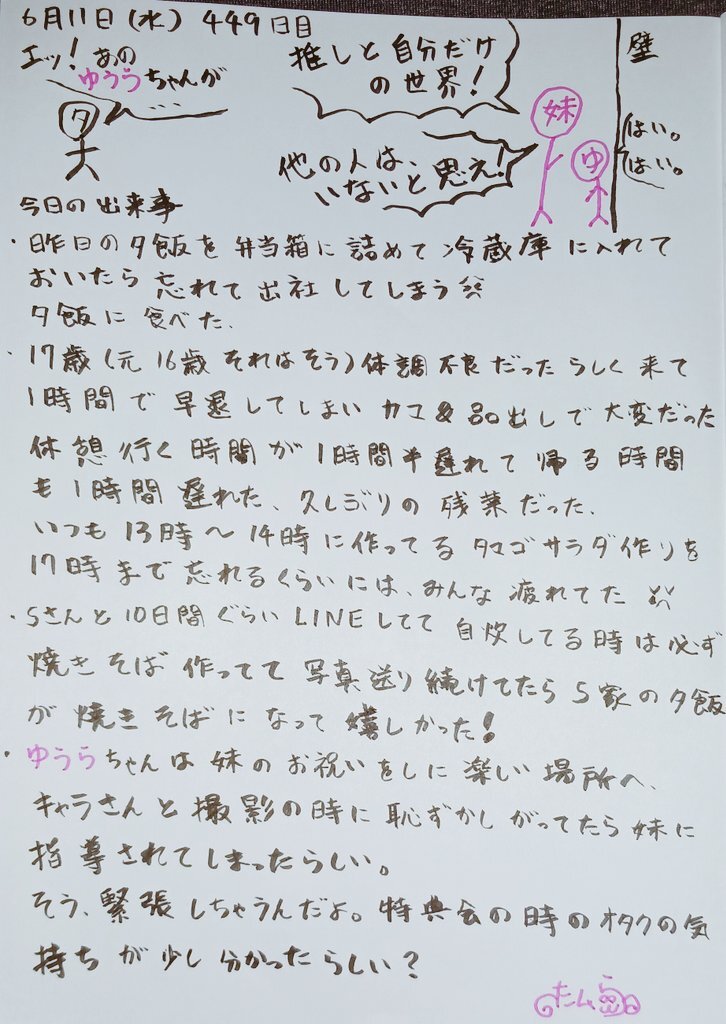 6月11日(水) 449日目
エッ!あの
ゆうらちゃんが
...
タ
推しと自分だけ
の世界!
他の人は、
いないと思え!
妹
ゆ
壁
はい。
はい。
今日の出来事
・昨日の夕飯を弁当箱に詰めて冷蔵庫に入れて
おいたら忘れて出社してしまう
夕飯に食べた.
・17歳(元16歳それはそう)体調不良だったらしく来て
1時間で早退してしまいカコ&品出しで大変だった
休憩行く時間が1時間半遅れて帰る時間
も1時間遅れた、久しぶりの残業だった.
いつも13時〜14時に作ってるタマゴサラダ作りを
17時まで忘れるくらいには、みんな疲れてた
・Sさんと10日間ぐらいLINEしてて自炊してる時は必ず
焼きそば作ってて写真送り続けてたらS家の夕飯
が焼きそばになって嬉しかった!
・ゆうらちゃんは妹のお祝いをしに楽しい場所へ、
キャラさんと撮影の時に恥ずかしがってたら妹に
指導されてしまったらしい。
そう、緊張しちゃうんだよ。特典会の時のオタクの気
持ちが少し分かったらしい?
たムら